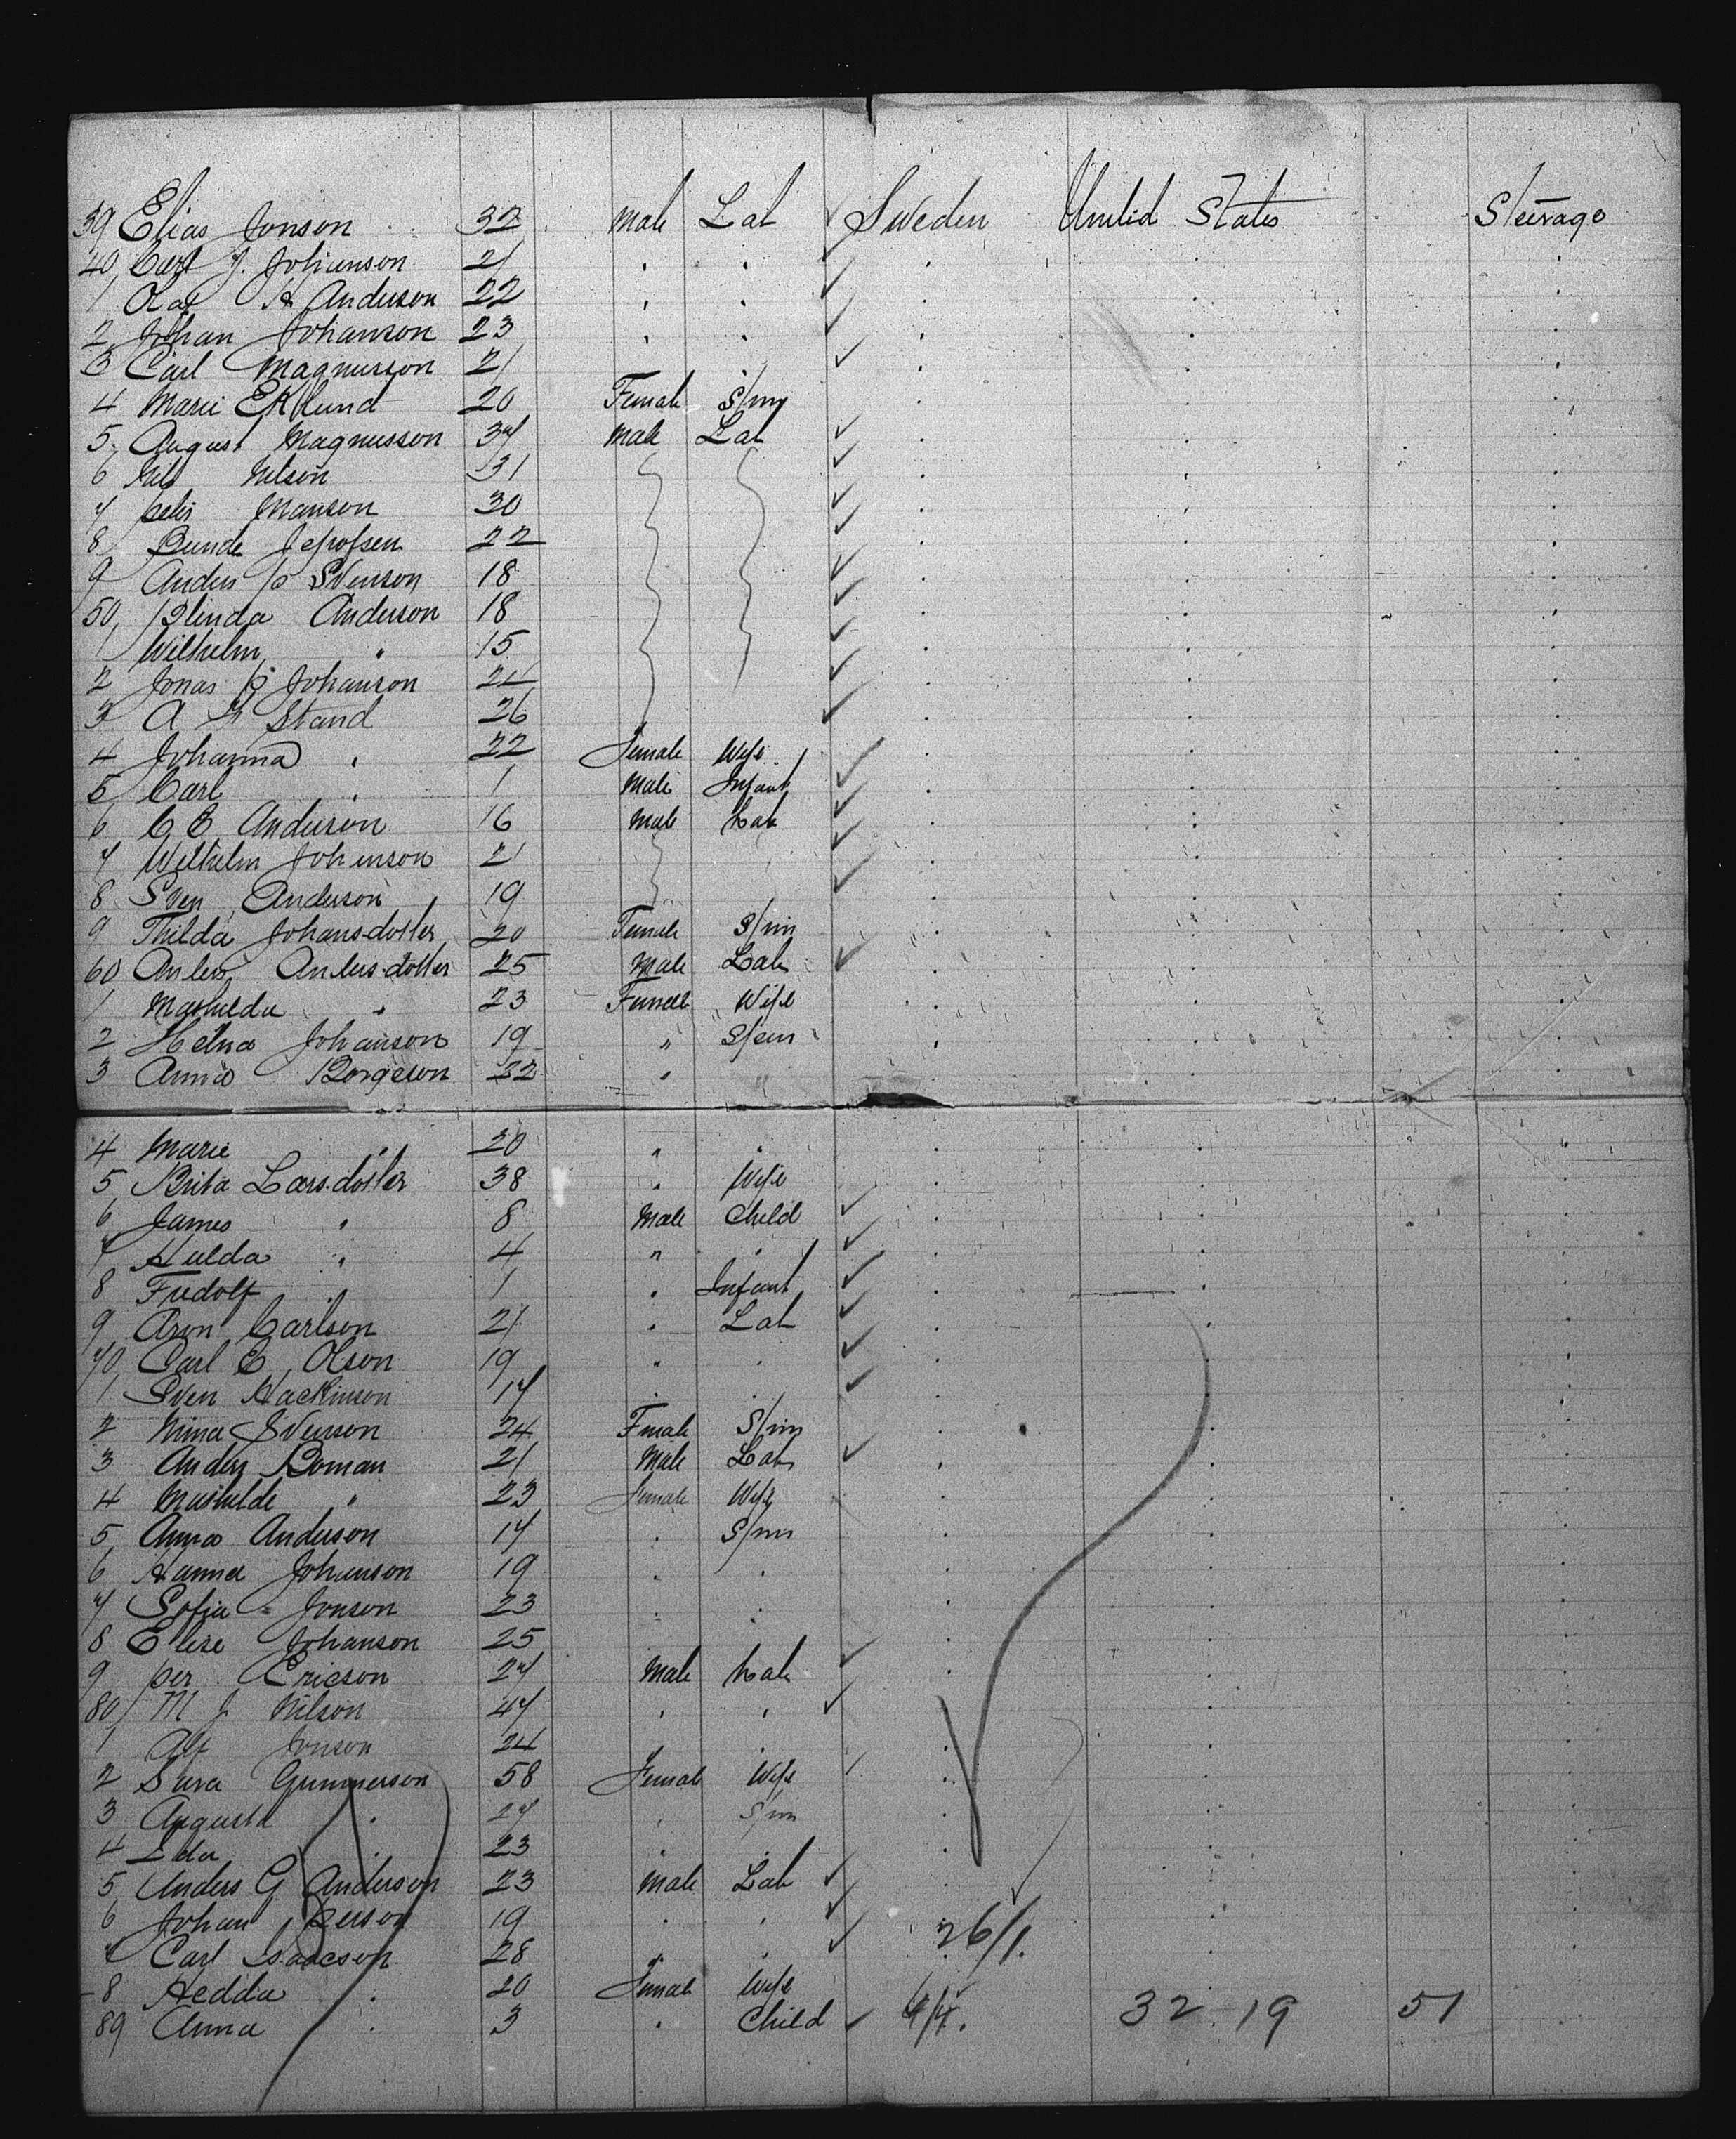 39 Elias Jonson 32 Male Lab Sweden United States Steerage
40 Carl J. Johanson 21 " "
1 Olof A Anderson 22 " "
2 Johan Johanson 23 " "
3 Carl Magnusson 21
4 Marie Eklund 20 Female Spin
5 August Magnusson 37 Male Lab
6 Nils Nelson 31
7 peter Manson 30
8 Bunde Jepofsen 22
9 Anders p Svenson 18
50 Blinda Anderson 18
1 Wilhelm " 15
2 Jonas p Johanson 21
3 A Stand 26
4 Johanna " 22 Female Wife
5 Carl " 1 Male Infant
6 C E Anderson 16 Male Lab
7 Wilhelm Johanson 21
8 Sven Anderson 19
9 Thilda Johansdotter 20 Female Spin
60 Anders Andersdotter 25 Male Lab
1 Mathilda " 23 Female Wife
2 Helna Johanson 19 " Spin
3 Anna Borgeson 22 "
4 Marie " 20 " "
5 Brita Larsdotter 38 " Wife
6 James " 8 Male Child
7 Hulda " 4 " "
8 Fridolf " 1 " Infant
9 Aron Carlson 21 " Lab
70 Carl E Olson 19 " "
1 Sven Hackinson 17 " "
2 Nina Svenson 24 Female Spin
3 Anders Boman 21 Male Lab
4 Mathilde " 23 Female Wife
5 Anna Anderson 17 " Spin
6 Hanna Johanson 19 " "
7 Sofia Jonson 23 " "
8 Elise Johanson 25
9 per Ericson 27 Male Lab
80 M J Nilson 47 " "
1 Alf Jonson 24 " "
2 Sara Gunnerson 58 Female Wife
3 Augusta " 27 " Spin
4 Ida " 23 " "
5 Anders G Anderson 23 Male Lab
6 Johan Person 19 " "
7 Carl Isaacson 28 " "
8 Hedda " 20 Female Wife
89 Anna " 3 " Child
26/1.
4/4. 32 19 51